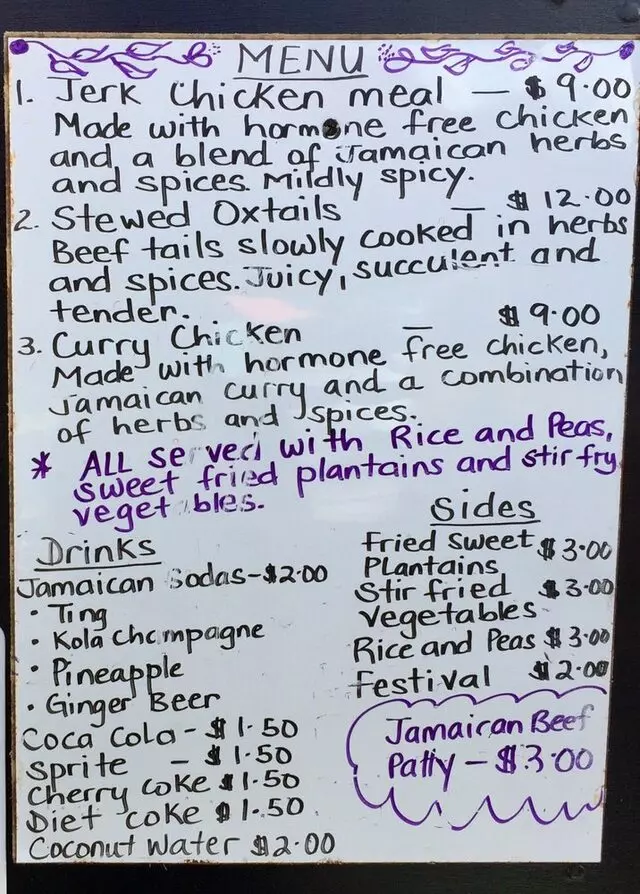 MENU
1. Jerk Chicken meal — $9.00
Made with hormone free chicken
and a blend of Jamaican herbs
and spices. Mildly spicy.
2. Stewed Oxtails — $12.00
Beef tails slowly cooked in herbs
and spices. Juicy, succulent and
tender.
3. Curry Chicken — $9.00
Made with hormone free chicken,
Jamaican curry and a combination
of herbs and spices.
* ALL served with Rice and Peas,
sweet fried plantains and stir fry
vegetables.
Drinks
Jamaican Sodas-$2.00
• Ting
• Kola Champagne
• Pineapple
• Ginger Beer
Coca Cola - $1.50
Sprite - $1.50
Cherry Coke $1.50
Diet Coke $1.50
Coconut Water $2.00
Sides
Fried Sweet $3.00
Plantains
Stir fried $3.00
Vegetables
Rice and Peas $3.00
Festival $2.00
Jamaican Beef
Patty - $3.00